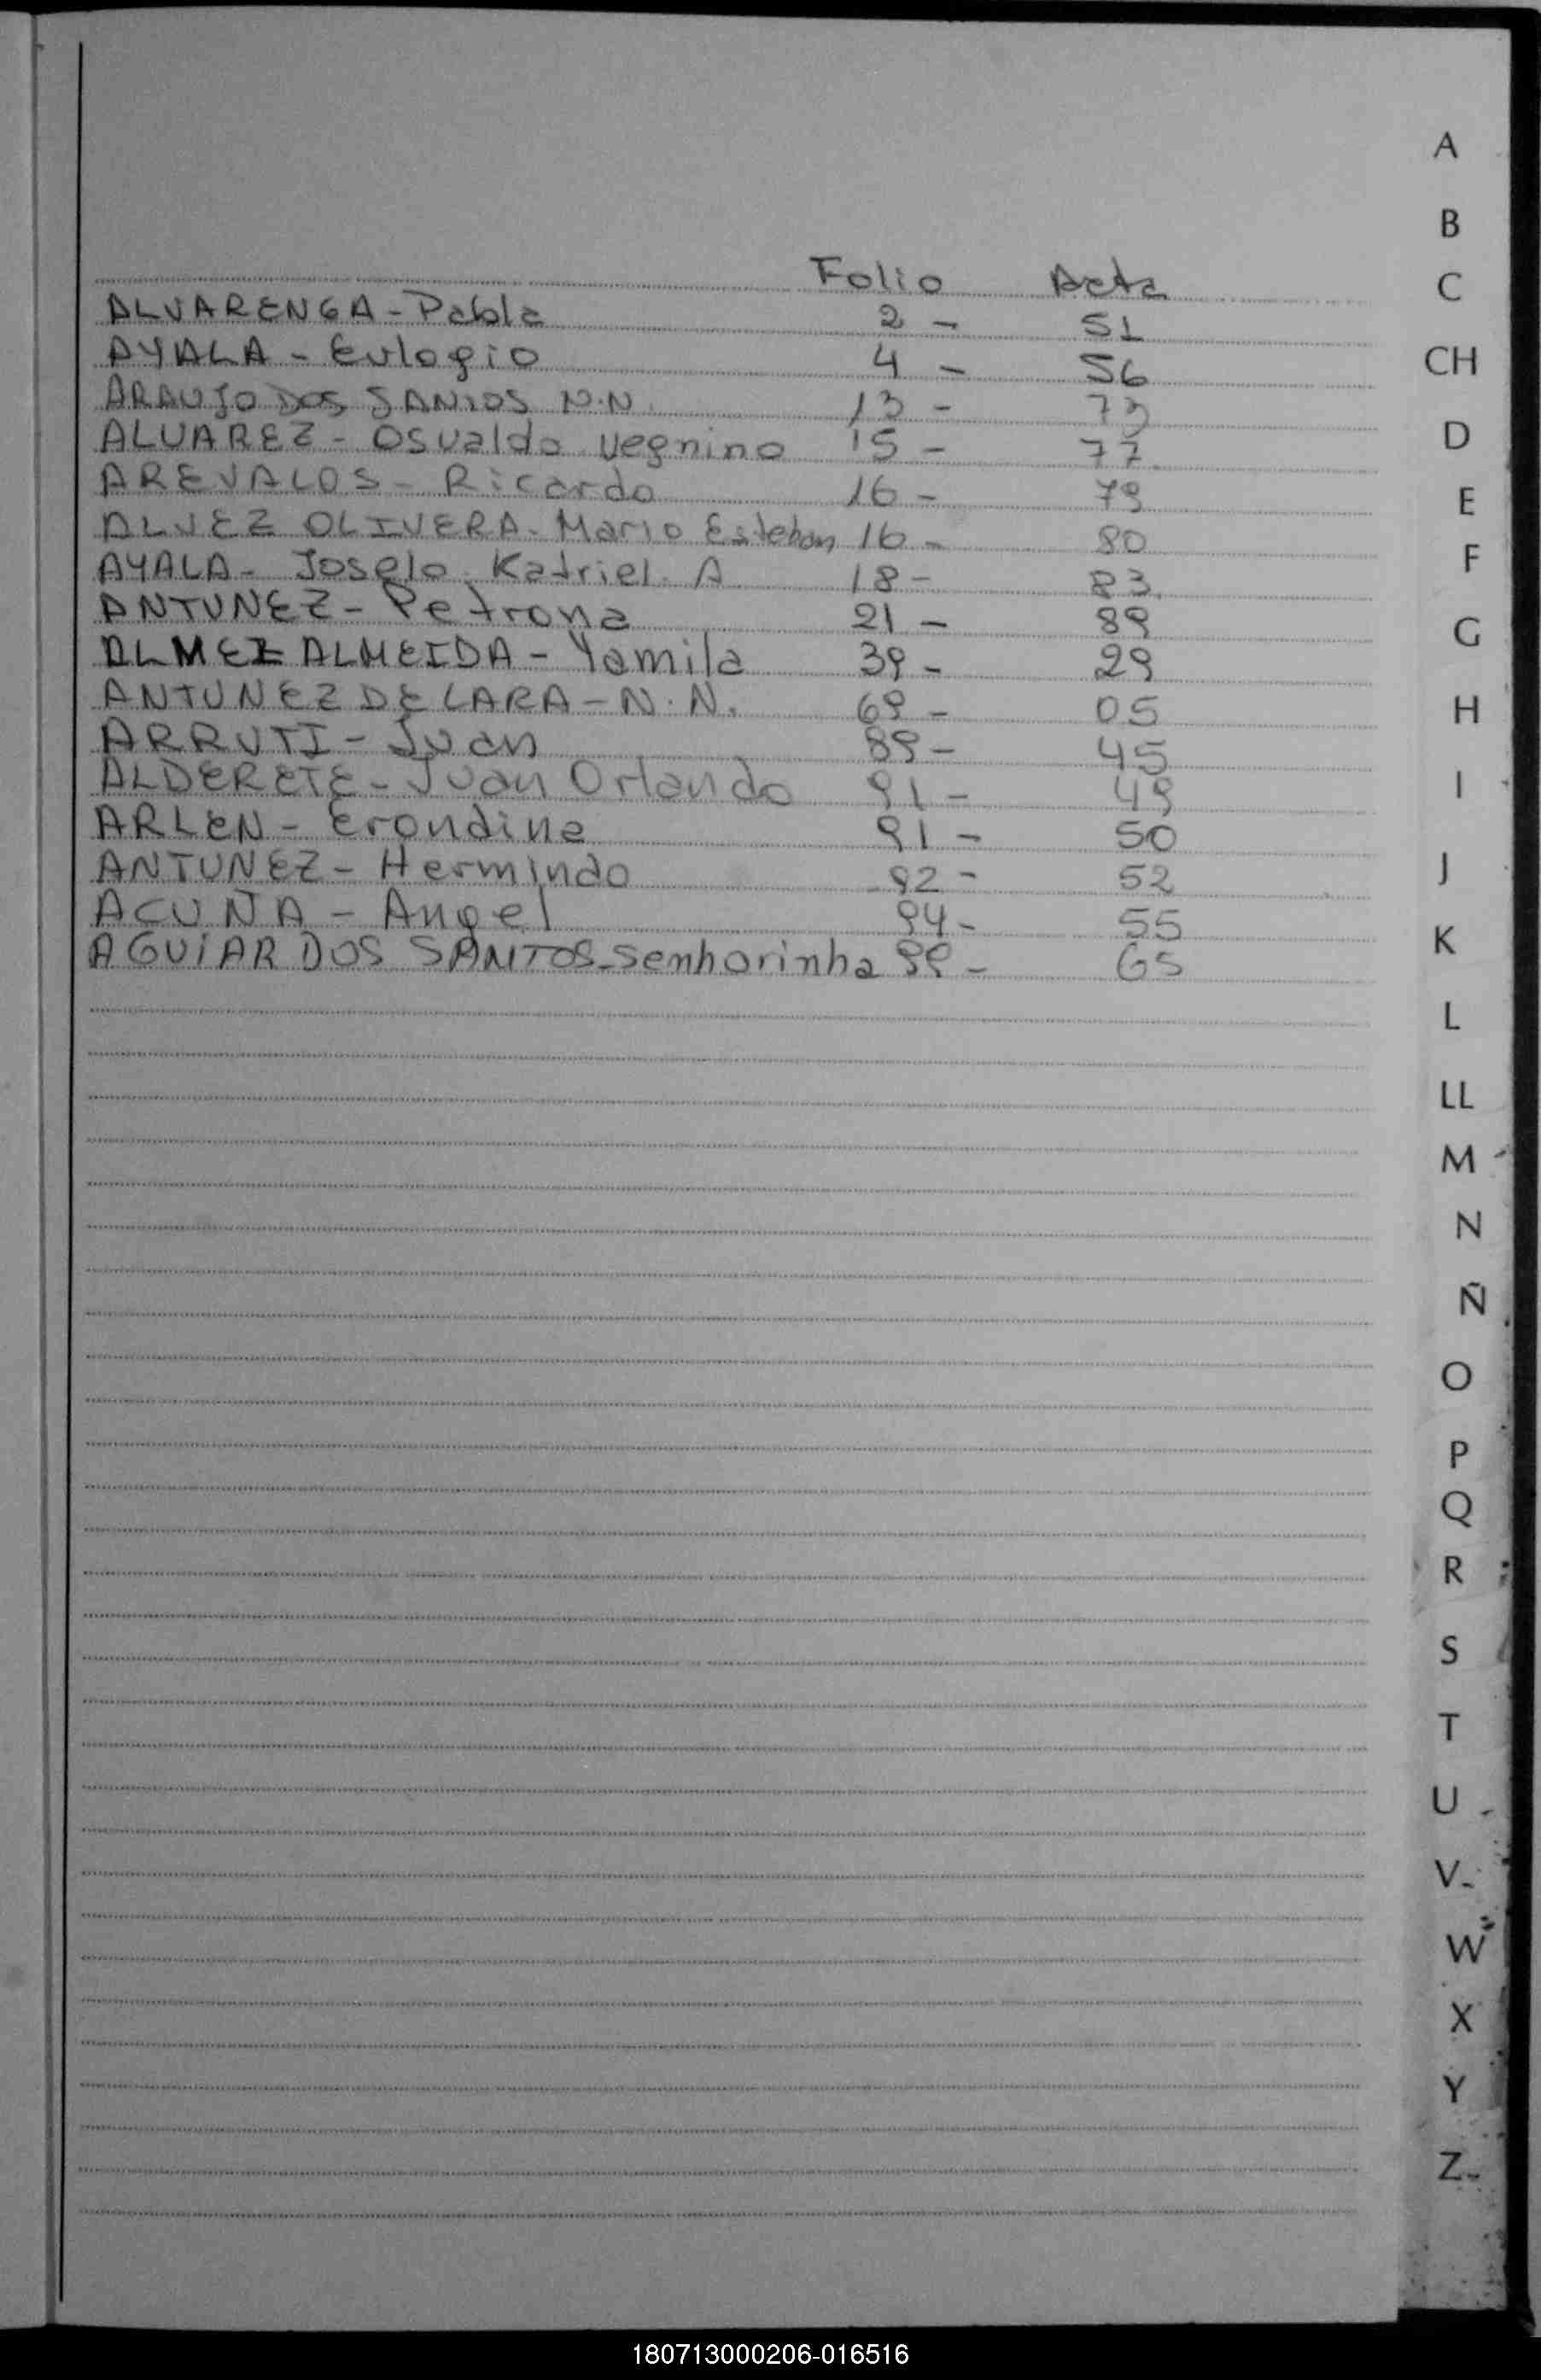 Folio Acta
ALVARENGA - Pabla 2 - 51
AYALA - Eulogio 4 - 56
ARAUJO DOS SANTOS N.N. 13 - 73
ALVAREZ - Osvaldo Vegnino 15 - 77
AREVALOS - Ricardo 16 - 79
ALVEZ OLIVERA - Mario Esteban 16 - 80
AYALA - Joselo Katriel A 18 - 83
ANTUNEZ - Petrona 21 - 89
ALMEZ ALMEIDA - Yamila 39 - 29
ANTUNEZ DE LARA - N.N. 69 - 05
ARRUTI - Juan 89 - 45
ALDERETE - Juan Orlando 91 - 49
ARLEN - Erondina 91 - 50
ANTUNEZ - Hermindo 92 - 52
ACUNA - Angel 94 - 55
AGUIAR DOS SANTOS - Senhorinha 99 - 65
A
B
C
CH
D
E
F
G
H
I
J
K
L
LL
M
N
Ñ
O
P
Q
R
S
T
U
V
W
X
Y
Z
180713000206-016516